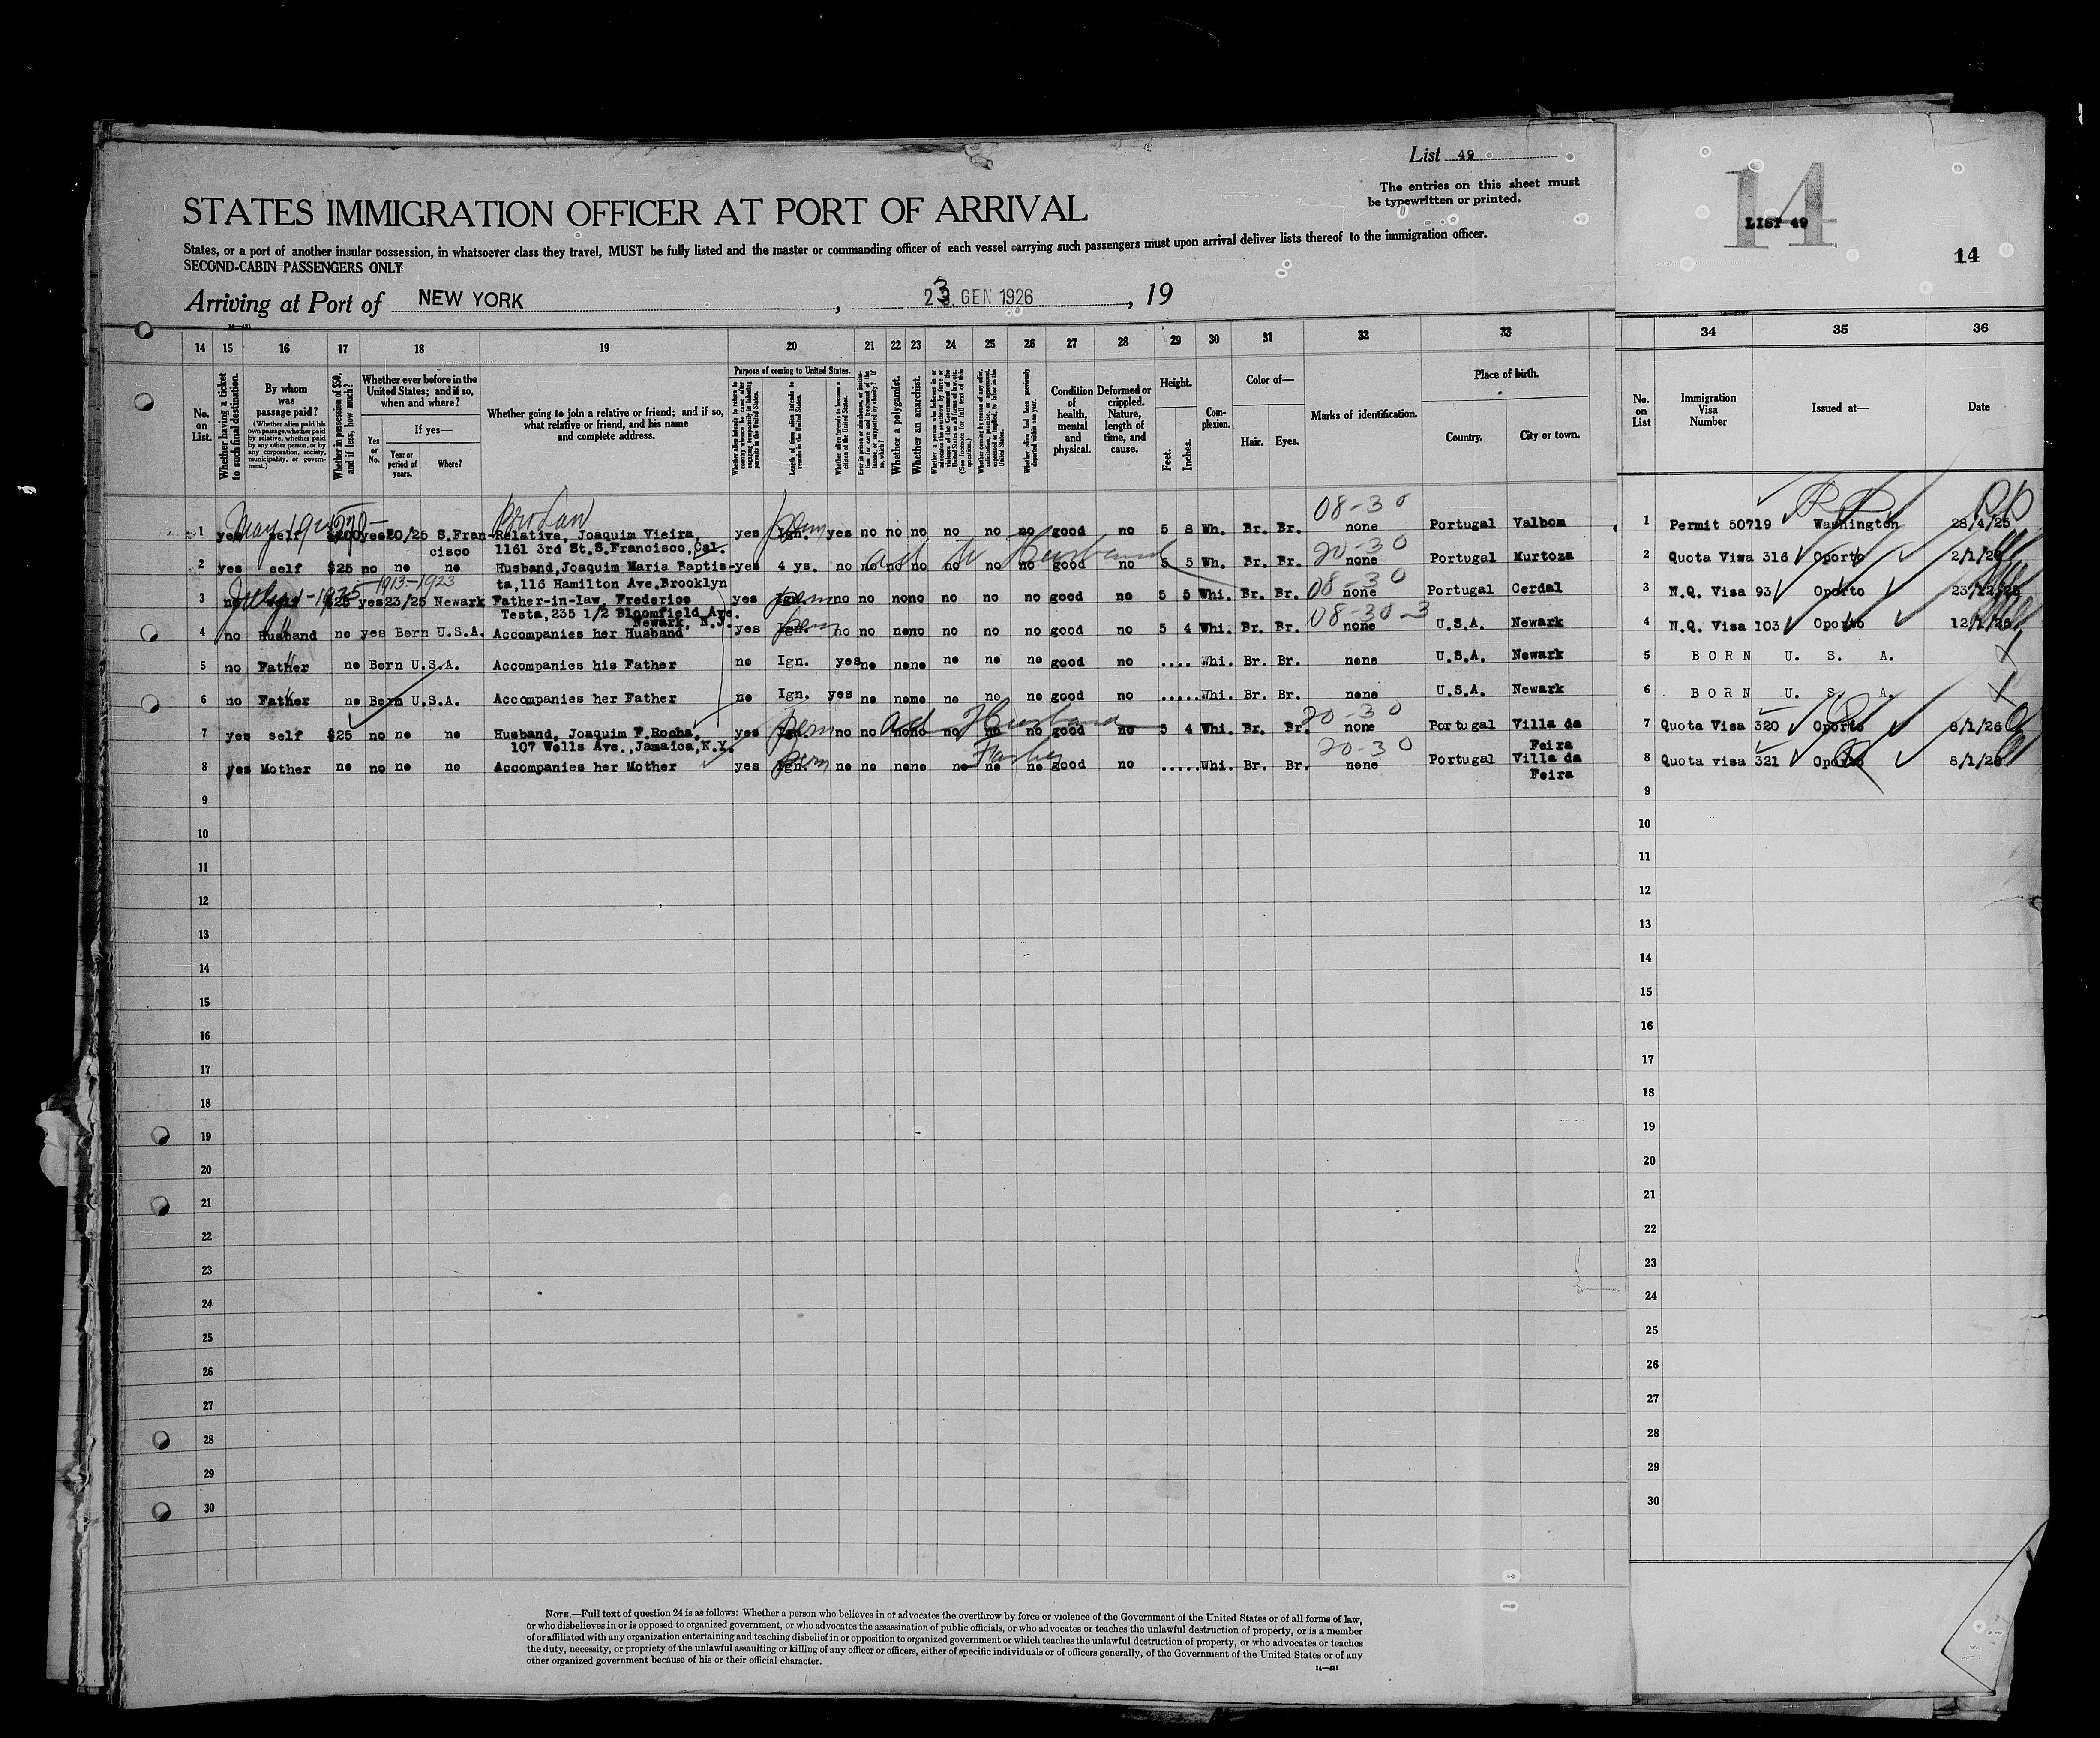 List 49
The entries on this sheet must
be typewritten or printed.
STATES IMMIGRATION OFFICER AT PORT OF ARRIVAL
States, or a port of another insular possession, in whatsoever class they travel, MUST be fully listed and the master or commanding officer of each vessel carrying such passengers must upon arrival deliver lists thereof to the immigration officer.
SECOND-CABIN PASSENGERS ONLY
Arriving at Port of NEW YORK, 23 GEN 1926, 19
14
LIST 49
14
14 15 16 17 18 19 20 21 22 23 24 25 26 27 28 29 30 31 32 33 34 35 36
No. on List.
Whether having a ticket to such final destination.
By whom was passage paid?
(Whether alien paid his own passage, whether paid by relative, whether paid by any other person, or by any corporation, society, municipality, or government.)
Whether in possession of $50, and if less, how much?
Whether ever before in the United States; and if so, when and where?
Yes or No.
If yes—
Year or period of years.
Where?
Whether going to join a relative or friend; and if so, what relative or friend, and his name and complete address.
Purpose of coming to United States.
Length of time alien intends to remain in the United States.
Whether alien intends to become a citizen of the United States.
Whether a polygamist.
Whether an anarchist.
Condition of health, mental and physical.
Deformed or crippled. Nature, length of time, and cause.
Height.
Feet.
Inches.
Complexion.
Color of—
Hair.
Eyes.
Marks of identification.
Place of birth.
Country.
City or town.
No. on List
Immigration Visa Number
Issued at—
Date
May 192 270— Bro Law perm 08-30
1 yes self $200 yes 20/25 S.Fran- Relative, Joaquim Vieira, yes Ign. yes no no no no no no good no 5 8 Wh. Br. Br. none Portugal Valbom 1 Permit 50719 Washington 28/4/25
cisco 1161 3rd St,S.Francisco,Cal.
ad to Husband 20-30
2 yes self $25 no no no Husband,Joaquim Maria Baptis- yes 4 ys. no no no no no no no good no 5 5 Wh. Br. Br. none Portugal Murtoza 2 Quota Visa 316 Oporto 2/1/26
ta,116 Hamilton Ave.Brooklyn
July 1-1925 1913-1923 perm 08-30
3 no self $25 yes 23/25 Newark Father-in-law, Frederico yes Ign. no no no no no no no good no 5 5 Whi. Br. Br. none Portugal Cerdal 3 N.Q. Visa 93 Oporto 23/12/25
Testa,235 1/2 Bloomfield Ave.
Newark, N.J.
perm 08-30-3
4 no Husband no yes Born U.S.A. Accompanies her Husband yes Ign. no no no no no no no good no 5 4 Whi. Br. Br. none U.S.A. Newark 4 N.Q. Visa 103 Oporto 12/1/26
5 no Father no Born U.S.A. Accompanies his Father no Ign. yes no no no no no no good no .... Whi. Br. Br. none U.S.A. Newark 5 BORN U. S. A.
6 no Father no Born U.S.A. Accompanies her Father no Ign. yes no no no no no no good no ..... Whi. Br. Br. none U.S.A. Newark 6 BORN U. S. A.
perm ad Husband 20-30
7 yes self $25 no no no Husband, Joaquim F.Rocha, yes Ign. no no no no no no no good no 5 4 Whi. Br. Br. none Portugal Villa da 7 Quota Visa 320 Oporto 8/1/26
107 Wells Ave.,Jamaica,N.Y. Feira
perm Father 20-30
8 yes Mother no no no no Accompanies her Mother yes Ign. no no no no no no no good no ..... Whi. Br. Br. none Portugal Villa da 8 Quota visa 321 Oporto 8/1/26
Feira
9 9
10 10
11 11
12 12
13 13
14 14
15 15
16 16
17 17
18 18
19 19
20 20
21 21
22 22
23 23
24 24
25 25
26 26
27 27
28 28
29 29
30 30
NOTE.—Full text of question 24 is as follows: Whether a person who believes in or advocates the overthrow by force or violence of the Government of the United States or of all forms of law,
or who disbelieves in or is opposed to organized government, or who advocates the assassination of public officials, or who advocates or teaches the unlawful destruction of property, or is a member
of or affiliated with any organization entertaining and teaching disbelief in or opposition to organized government or which teaches the unlawful destruction of property, or who advocates or teaches
the duty, necessity, or propriety of the unlawful assaulting or killing of any officer or officers, either of specific individuals or of officers generally, of the Government of the United States or of any
other organized government because of his or their official character.